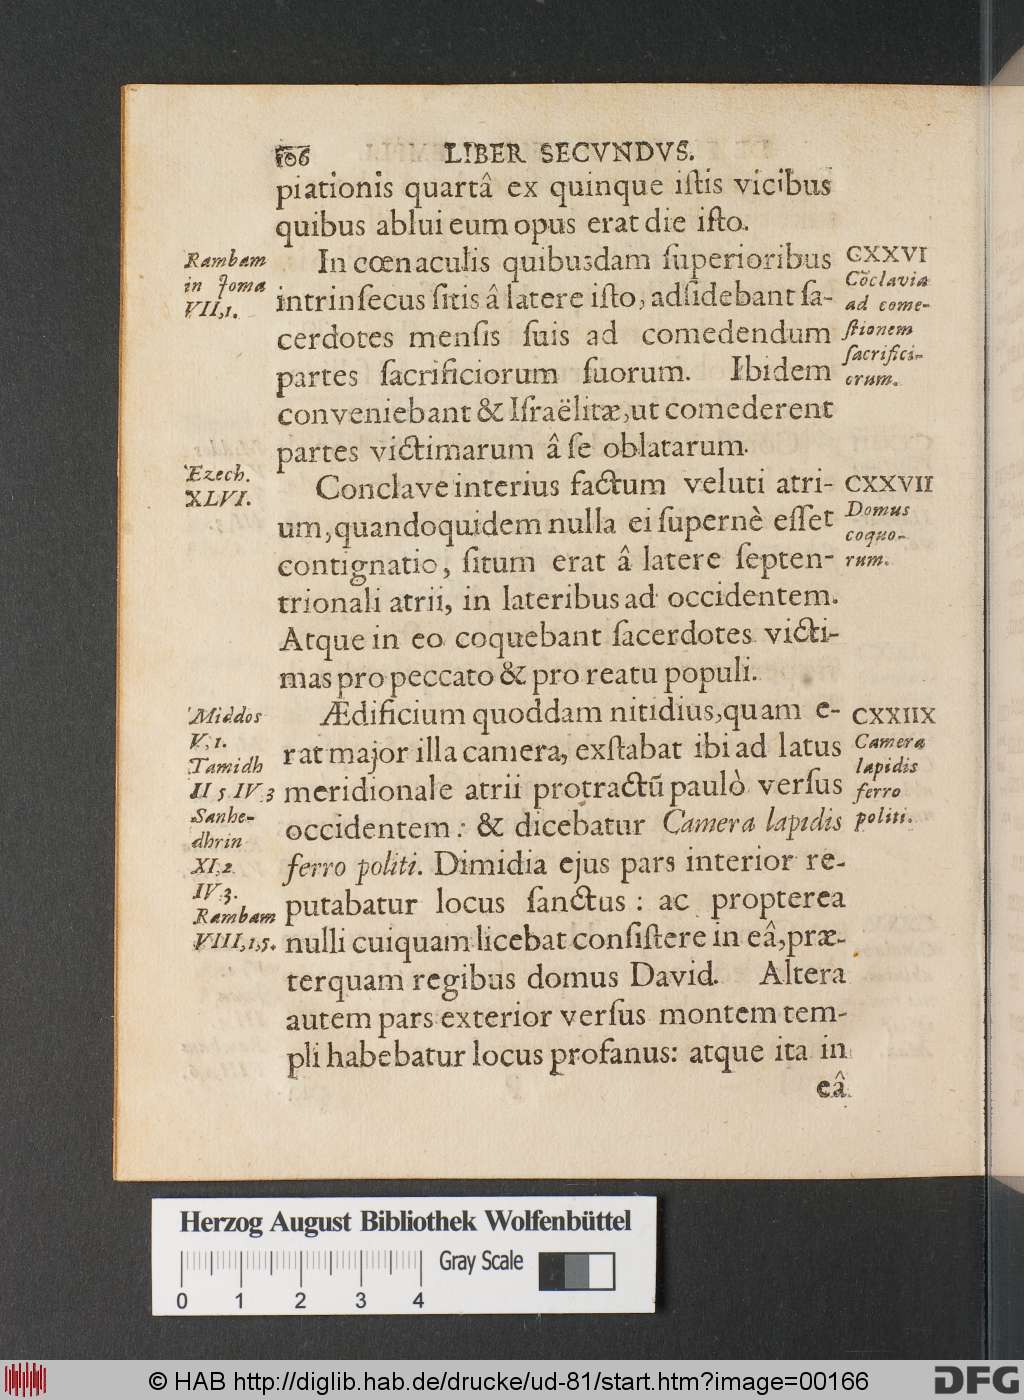 106 LIBER SECVNDVS.
piationis quartâ ex quinque iſtis vicibus
quibus ablui eum opus erat die iſto.
Rambam
in Joma
VII,1.
In cœnaculis quibusdam ſuperioribus
intrinſecus ſitis â latere iſto, adſidebant ſa-
cerdotes menſis ſuis ad comedendum
partes ſacrificiorum ſuorum. Ibidem
conveniebant & Iſraëlitæ, ut comederent
partes victimarum â ſe oblatarum.
CXXVI
Cõclavia
ad come-
ſtionem
ſacrifici-
orum.
Ezech.
XLVI.
Conclave interius factum veluti atri-
um, quandoquidem nulla ei ſupernè eſſet
contignatio, ſitum erat â latere ſepten-
trionali atrii, in lateribus ad occidentem.
Atque in eo coquebant ſacerdotes victi-
mas pro peccato & pro reatu populi.
CXXVII
Domus
coquo-
rum.
Middos
V,1.
Tamidh
II 5 IV.3
Sanhe-
dhrin
XI,2
IV.3.
Rambam
VIII,1,5.
Ædificium quoddam nitidius, quam e-
rat major illa camera, exſtabat ibi ad latus
meridionale atrii protractũ paulò verſus
occidentem: & dicebatur Camera lapidis
ferro politi. Dimidia ejus pars interior re-
putabatur locus ſanctus: ac propterea
nulli cuiquam licebat conſiſtere in eâ, præ-
terquam regibus domus David. Altera
autem pars exterior verſus montem tem-
pli habebatur locus profanus: atque ita in
eâ
CXXIIX
Camera
lapidis
ferro
politi.
Herzog August Bibliothek Wolfenbüttel
Gray Scale
0 1 2 3 4
© HAB http://diglib.hab.de/drucke/ud-81/start.htm?image=00166
DFG